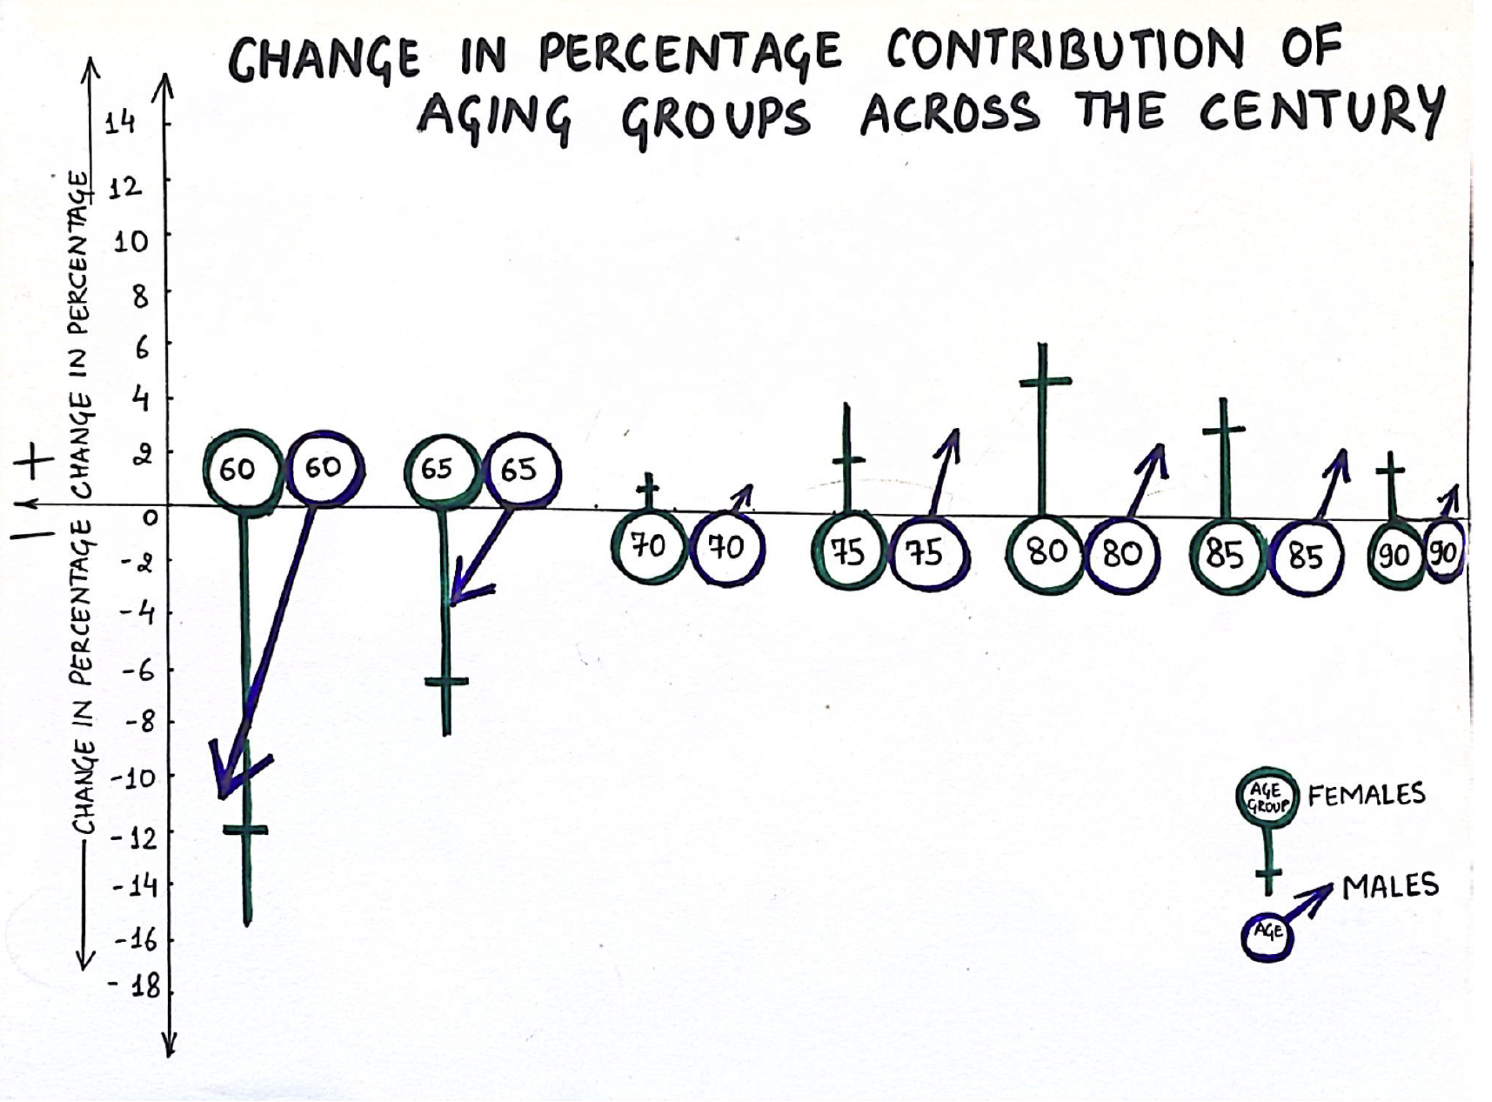 CHANGE IN PERCENTAGE CONTRIBUTION OF
AGING GROUPS ACROSS THE CENTURY
CHANGE IN PERCENTAGE
CHANGE IN PERCENTAGE
+
−
14
12
10
8
6
4
2
0
-2
-4
-6
-8
-10
-12
-14
-16
-18
60 60 65 65
70 70 75 75 80 80 85 85 90 90
AGE
GROUP
FEMALES
MALES
AGE